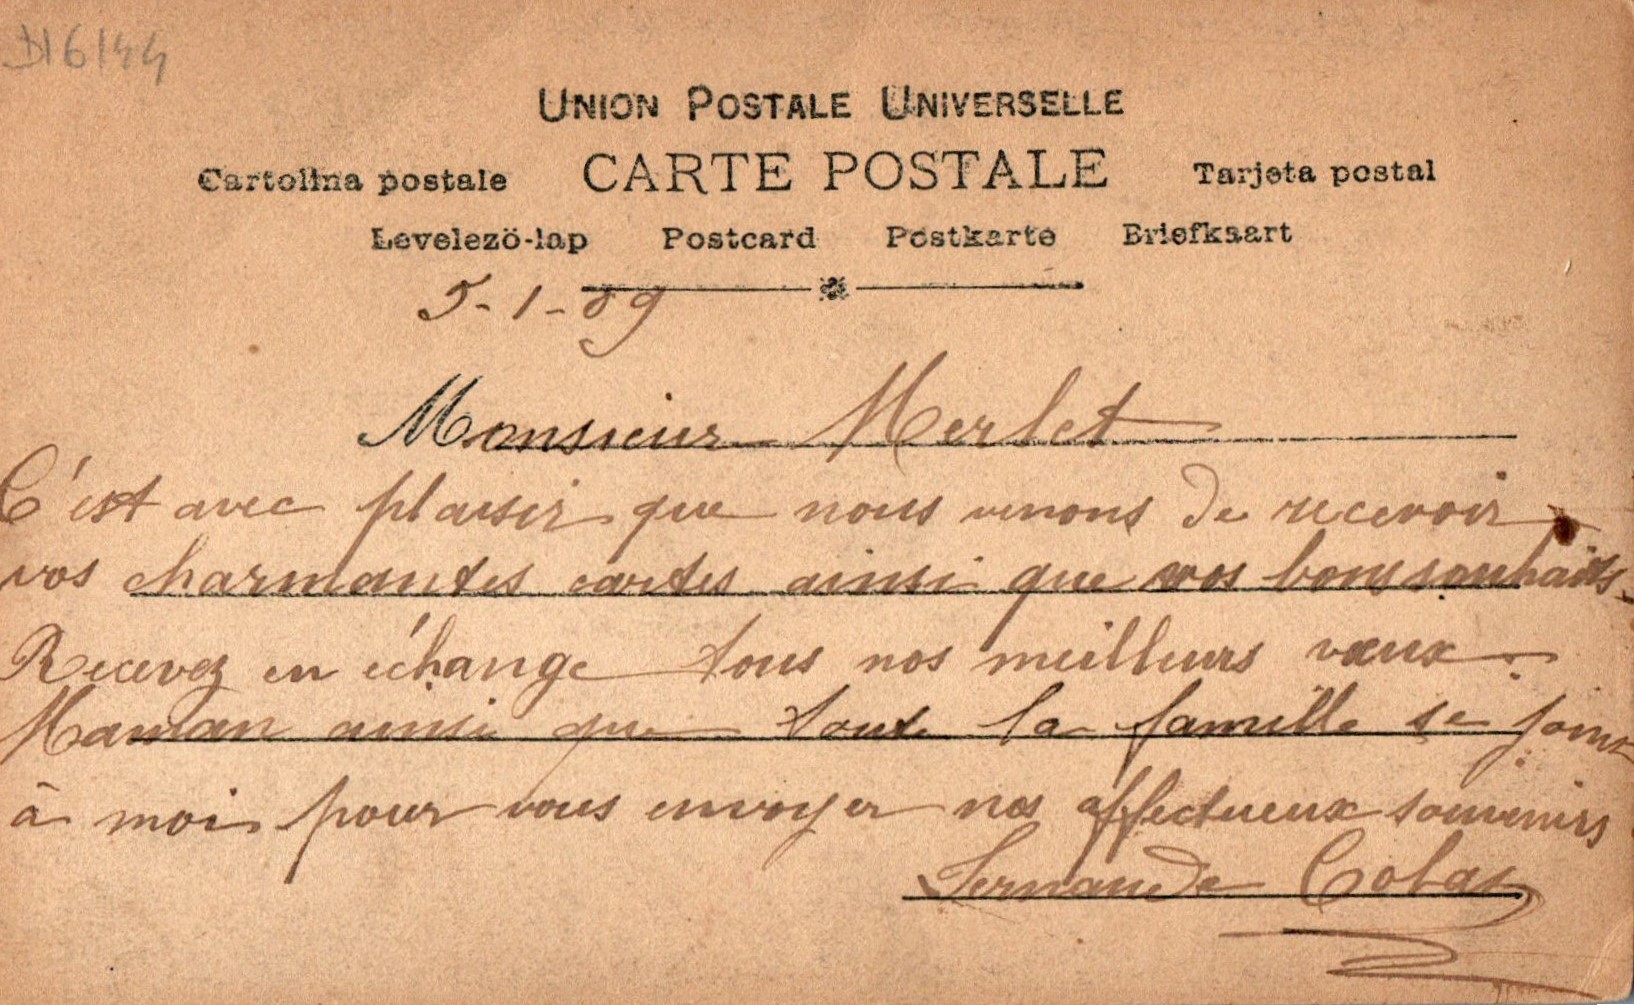 UNION POSTALE UNIVERSELLE
CARTE POSTALE
Cartolina postale Tarjeta postal
Levelezö-lap Postcard Postkarte Briefkaart
5-1-09
Monsieur Merlet
C'est avec plaisir que nous venons de recevoir
vos charmantes cartes ainsi que vos bons souhaits.
Recevez en échange tous nos meilleurs vœux.
Maman ainsi que toute la famille se joint
à moi pour vous envoyer nos affectueux souvenirs.
Fernande Colas